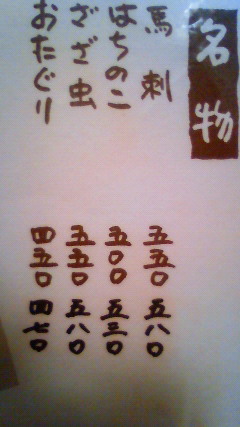 名物
馬刺 五五〇 五八〇
はちのこ 五〇〇 五三〇
ざざ虫 五五〇 五八〇
おたぐり 四五〇 四七〇